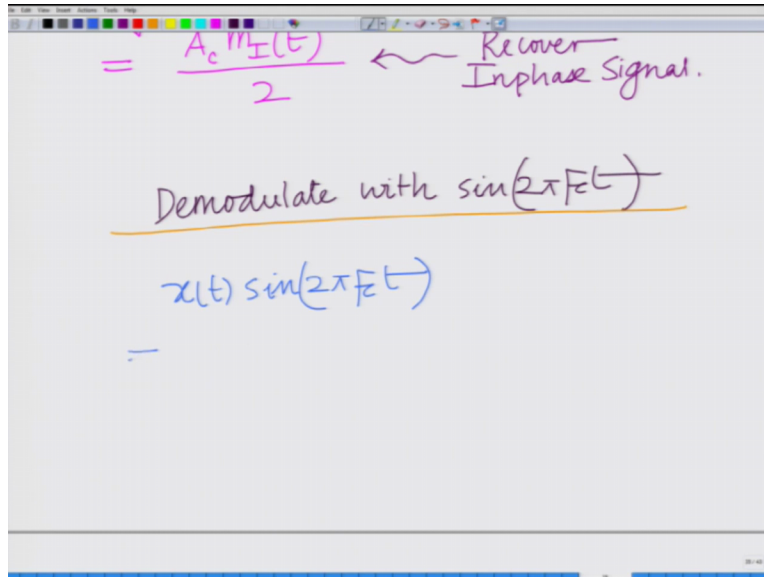 File Edit View Insert Actions Tools Help
= A_c m_I(t) / 2 ← Recover
Inphase Signal.
Demodulate with sin(2πF_c t)
x(t) sin(2πF_c t)
=